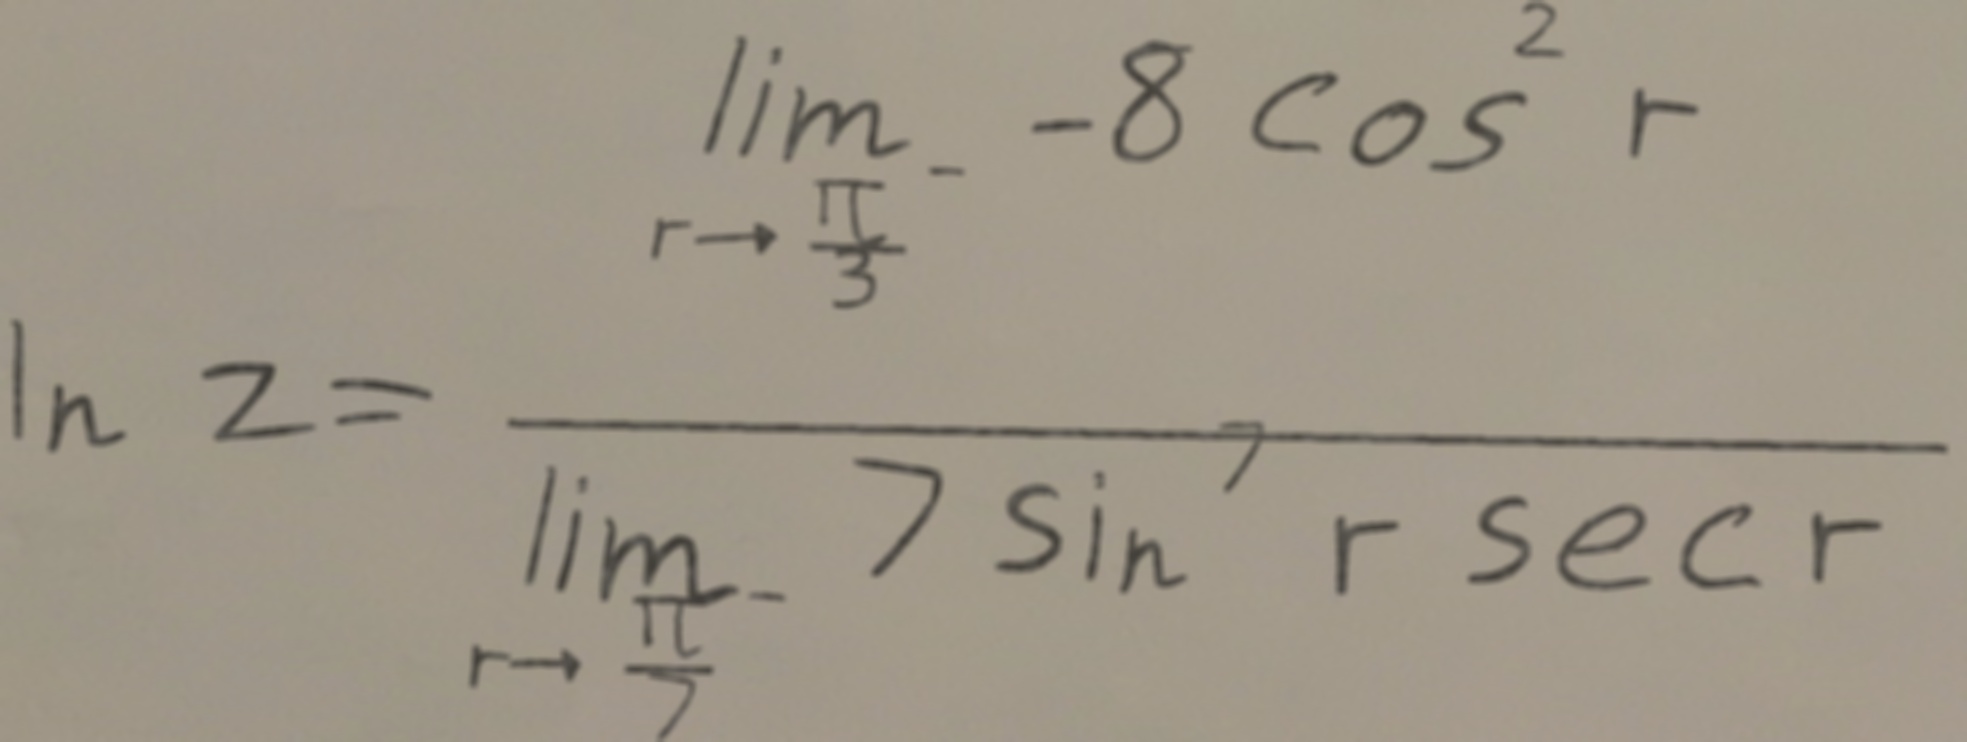 \ln z = \frac{\lim_{r \to \frac{\pi}{3}^-} -8 \cos^2 r}{\lim_{r \to \frac{\pi}{7}^-} 7 \sin^7 r \sec r}